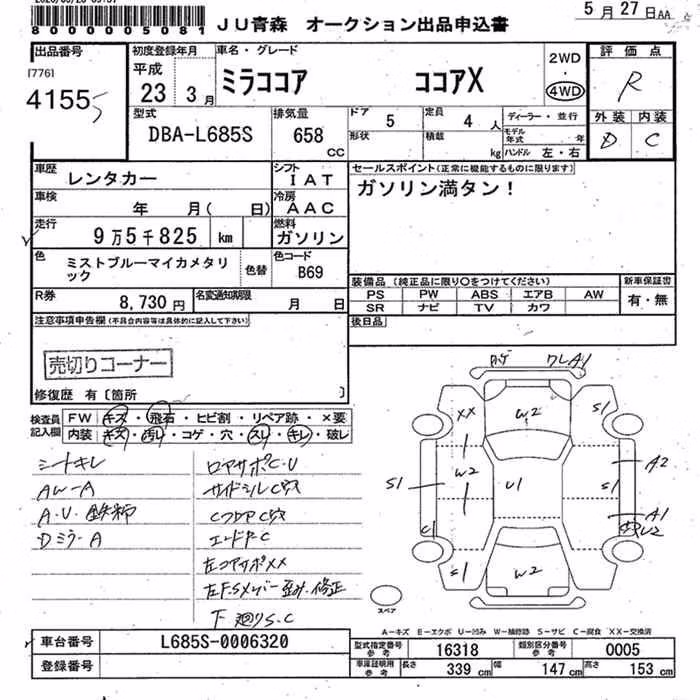 8000005081
JU青森 オークション出品申込書
5月27日AA
出品番号
[776]
4155
初度登録年月
平成
23 3月
車名・グレード
ミラココア ココアX
2WD
・
4WD
評価点
R
外装 内装
D C
型式
DBA-L685S
排気量
658
CC
ドア
5
定員
4人
形状
積載
kg
ディーラー・並行
モデル年式 年
ハンドル 左・右
車歴
レンタカー
シフト
IAT
車検
年 月( 日)
冷房
AAC
走行
9万5千825 km
燃料
ガソリン
色
ミストブルーマイカメタリック
色替
色コード
B69
R券
8,730円
名変通知期限
月 日
セールスポイント(正常に機能するものに限ります)
ガソリン満タン!
装備品 (純正品に限り○をつけてください)
PS PW ABS エアB AW
SR ナビ TV カワ
新車保証書
有・無
後日品
注意事項申告欄(不具合内容等は具体的に記入して下さい)
売切りコーナー
修復歴 有〔箇所 〕
検査員記入欄
FW キズ・飛石・ヒビ割・リペア跡・×要
内装 キズ・汚れ・コゲ・穴・スレ・キレ・破レ
シートキレ
AW-A
A.U.鉄粉
Dミラ-A
ロアサポC.U
サイドシルC穴
CフロアC穴
エンドP.C
左コアサポXX
左F.Sメンバー歪み.修正
下廻りS.C
ワレA1
XX
W2
S1
W2
U1
S1
A2
S1
A1
C1
S1
W2
スペア
A-キズ E-エクボ U-凹み W-補修跡 S-サビ C-腐食 XX-交換済
車台番号
L685S-0006320
登録番号
型式指定番号
参考
16318
類別区分番号
参考
0005
車庫証明用
参考
長さ
339cm
幅
147cm
高さ
153cm